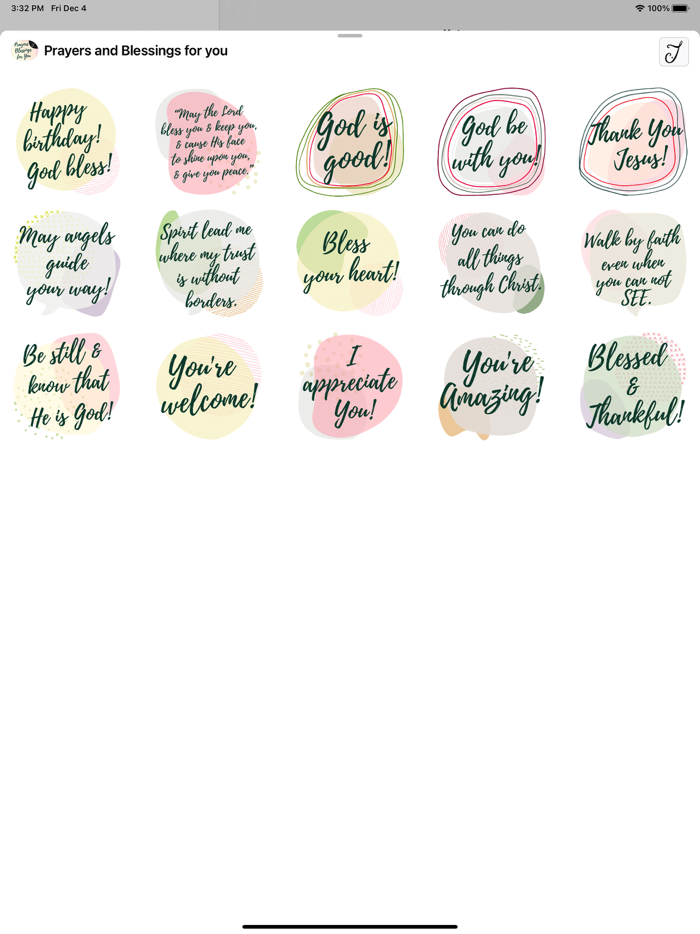 3:32 PM Fri Dec 4
100%
Prayers
Blessings
for You
Prayers and Blessings for you
Happy
birthday!
God bless!
"May the Lord
bless you & keep you,
& cause His face
to shine upon you,
& give you peace."
God is
good!
God be
with you!
Thank You
Jesus!
May angels
guide
your way!
Spirit lead me
where my trust
is without
borders.
Bless
your heart!
You can do
all things
through Christ.
Walk by faith
even when
you can not
SEE.
Be still &
know that
He is God!
You're
welcome!
I
appreciate
You!
You're
Amazing!
Blessed
&
Thankful!